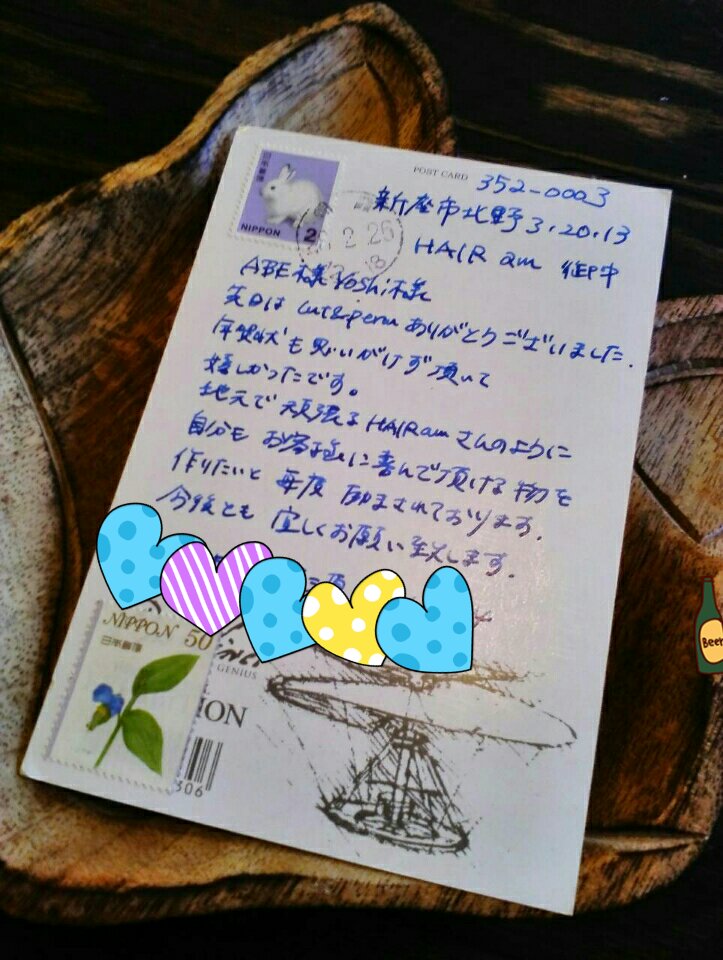 POST CARD
352-0003
新座市北野3.20.13
HAIR am 御中
日本郵便
NIPPON 2
2 25
ABE様 Yoshi様
先日は cut&perm ありがとうございました.
年賀状も思いがけず頂いて
嬉しかったです。
地元で頑張るHAIR amさんのように
自分も お客様に喜んで頂ける物を
作りたいと 毎度 励まされております.
今後とも 宜しくお願い致します.
NIPPON 50
日本郵便
GENIUS
ION
306
Beer